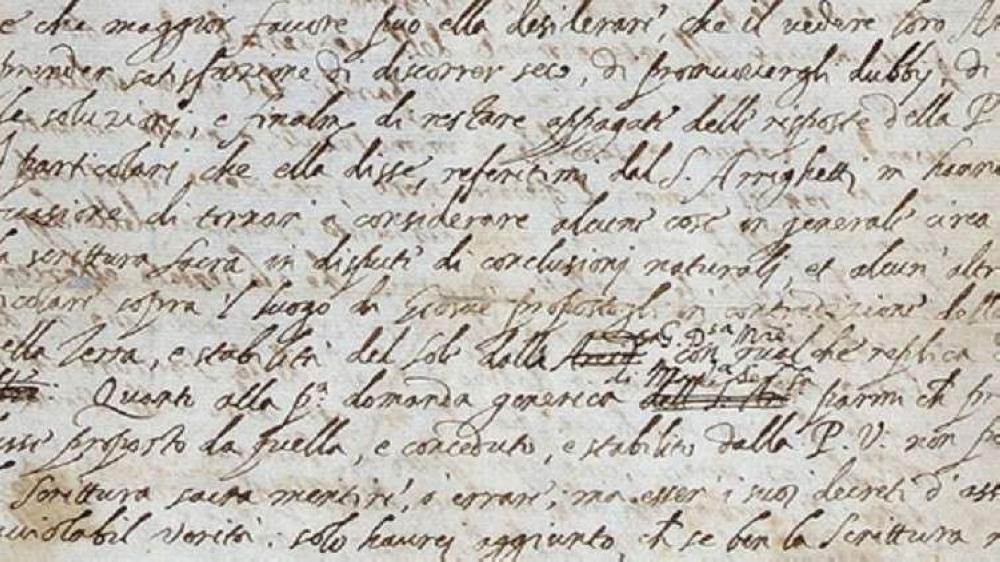 e che maggior favore può ella desiderare, che il vedere loro
prender satisfazione di discorrer seco, di promuovergli dubbij, di
le soluzioni, e finalm di restare appagate delle risposte della P
particolari, che ella disse, referitimi dal S. Arrighetti, m hanno
casione di tornar a considerare alcune cose in generale circa
la scrittura sacra in dispute di conclusioni naturali, et alcun' altre
colare sopra 'l luogo di Giosuè propostogli in contradizione
ella Terra, e stabilità del Sole dalla con qualche replica
Quanto alla p.ª domanda generica parmi ch
proposto da quella, e conceduto, e stabilito dalla P. V. non
Scrittura sacra mentire, o errare; ma esser i suoi decreti d'
inviolabil verità. solo haurei aggiunto, ch se ben la Scrittura